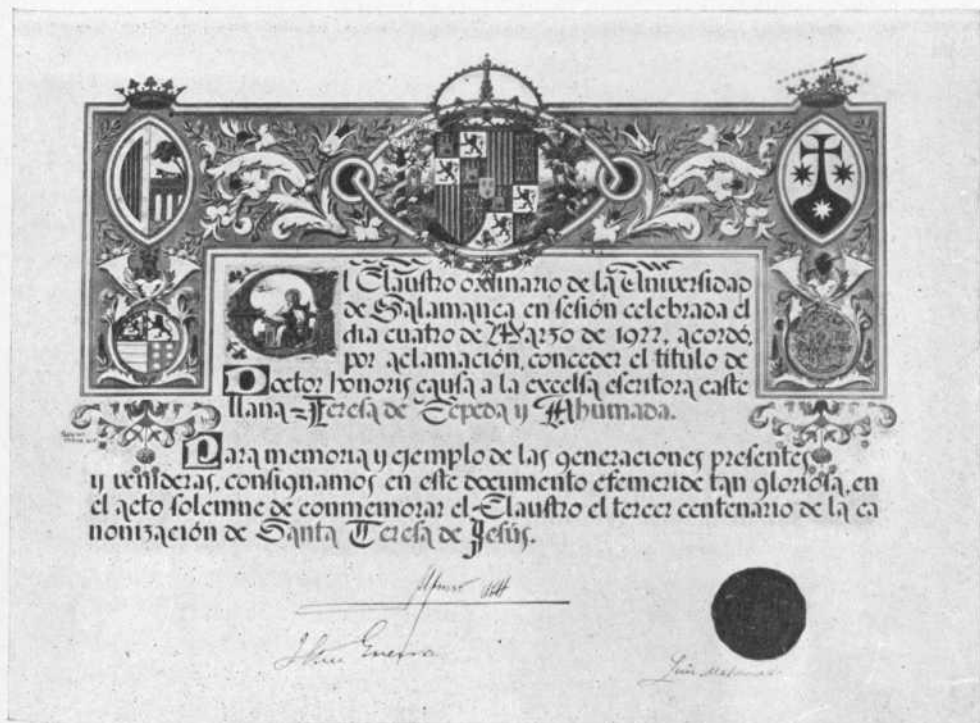 El Claustro ordinario de la Universidad
de Salamanca en sesión celebrada el
dia cuatro de Marzo de 1922, acordó,
por aclamación, conceder el título de
Doctor honoris causa a la excelsa escritora caste
llana = Teresa de Cepeda y Ahumada.
Para memoria y ejemplo de las generaciones presentes
y venideras, consignamos en este documento efemeride tan gloriosa, en
el acto solemne de conmemorar el Claustro el tercer centenario de la ca
nonización de Santa Teresa de Jesús.
Alfonso XIII